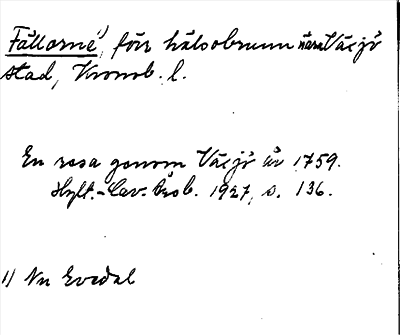 Fållorne¹⁾, förr hälsobrunn nära Växjö
stad, Kronob. l.
En resa genom Växjö år 1759.
Hylt.-Cav. årsb. 1927, s. 136.
1) Nu Evedal